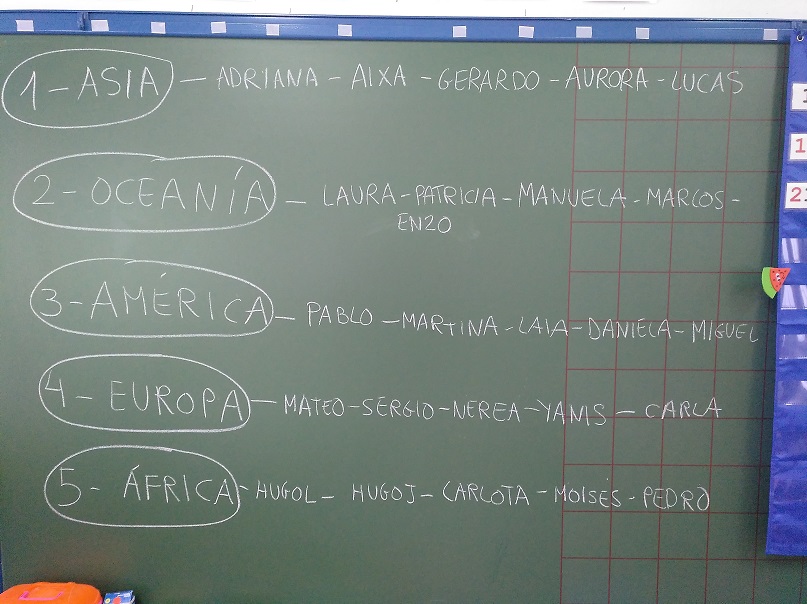 1 - ASIA - ADRIANA - AIXA - GERARDO - AURORA - LUCAS
2 - OCEANÍA - LAURA - PATRICIA - MANUELA - MARCOS -
ENZO
3 - AMÉRICA - PABLO - MARTINA - LAIA - DANIELA - MIGUEL
4 - EUROPA - MATEO - SERGIO - NEREA - YANIS - CARLA
5 - ÁFRICA - HUGOL - HUGOJ - CARLOTA - MOISÉS - PEDRO